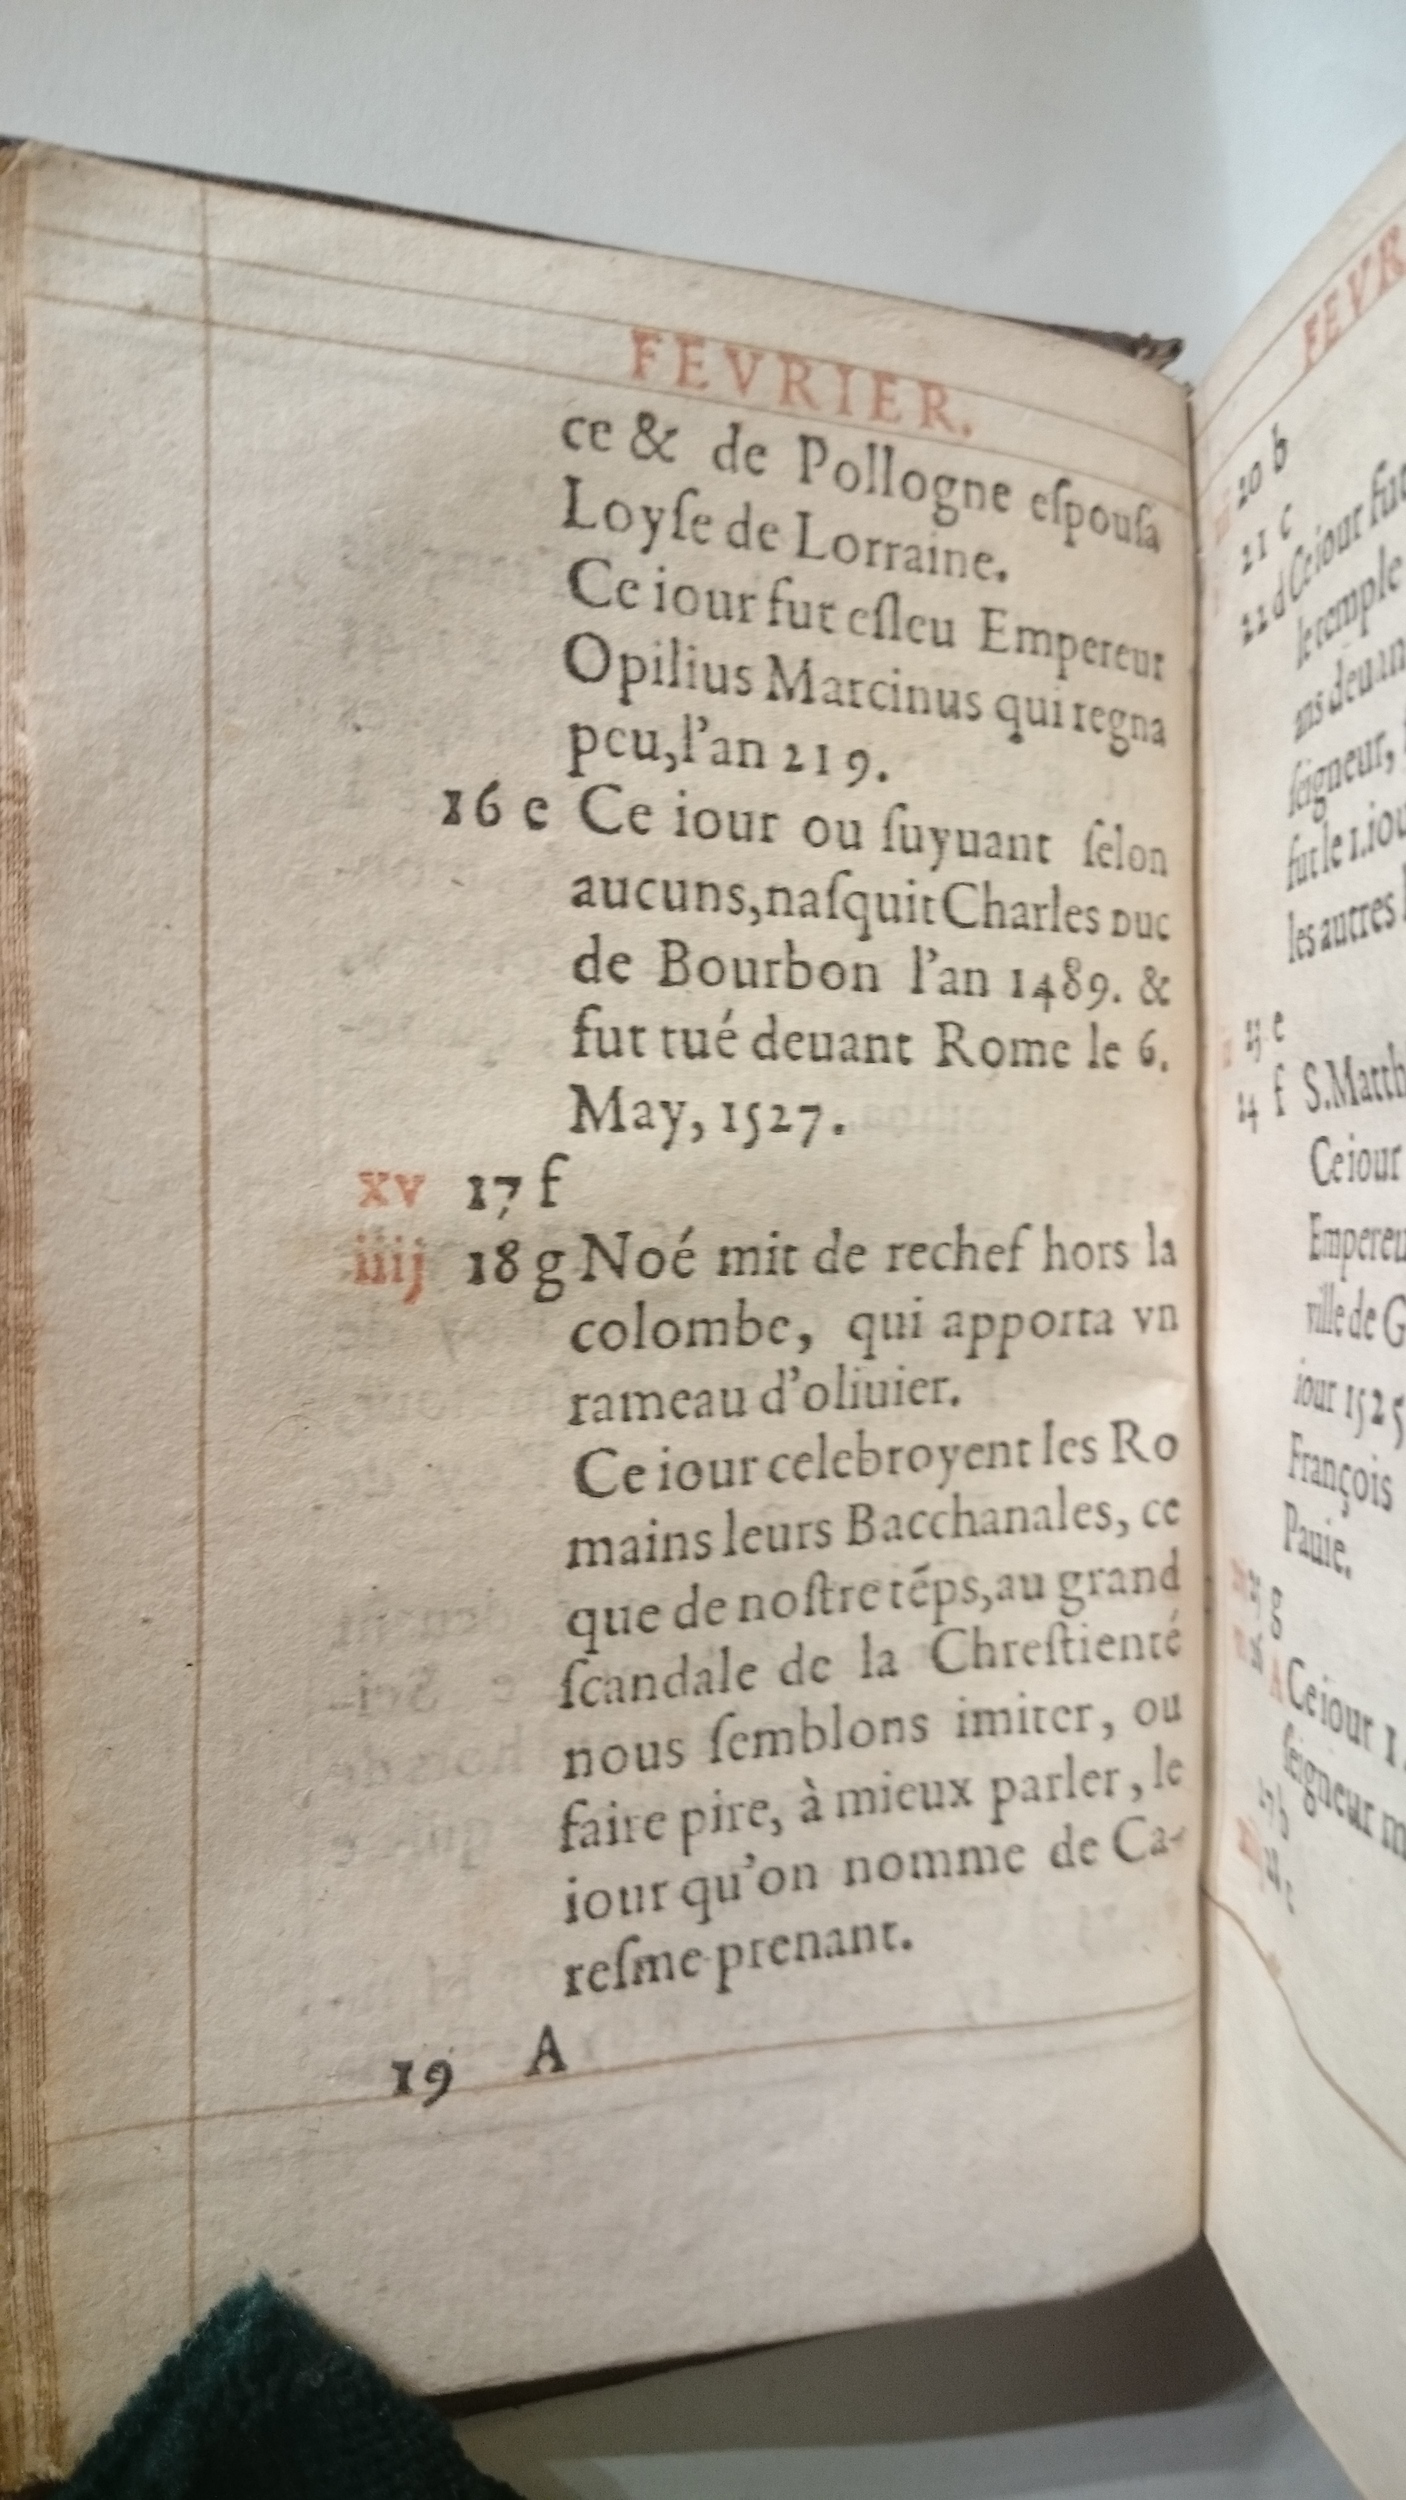 FEVRIER.
ce & de Pollogne eſpouſa
Loyſe de Lorraine.
Ce iour fut eſleu Empereur
Opilius Marcinus qui regna
peu, l'an 219.
16 e Ce iour ou ſuyuant ſelon
aucuns, naſquit Charles Duc
de Bourbon l'an 1489. &
fut tué deuant Rome le 6.
May, 1527.
xv 17 f
iiij 18 g Noé mit de rechef hors la
colombe, qui apporta vn
rameau d'oliuier.
Ce iour celebroyent les Ro
mains leurs Bacchanales, ce
que de noſtre tẽps, au grand
ſcandale de la Chreſtienté
nous ſemblons imiter, ou
faire pire, à mieux parler, le
iour qu'on nomme de Ca-
reſme-prenant.
19 A
FEVR
20 b
21 c
22 d Ce iour fut
le temple
ans deuan
ſeigneur,
fut le 1.iou
les autres
23 e
24 f S.Matth
Ce iour
Empereu
ville de G
iour 1525
François
Pauie.
25 g
26 A Ce iour
ſeigneur m
27 b